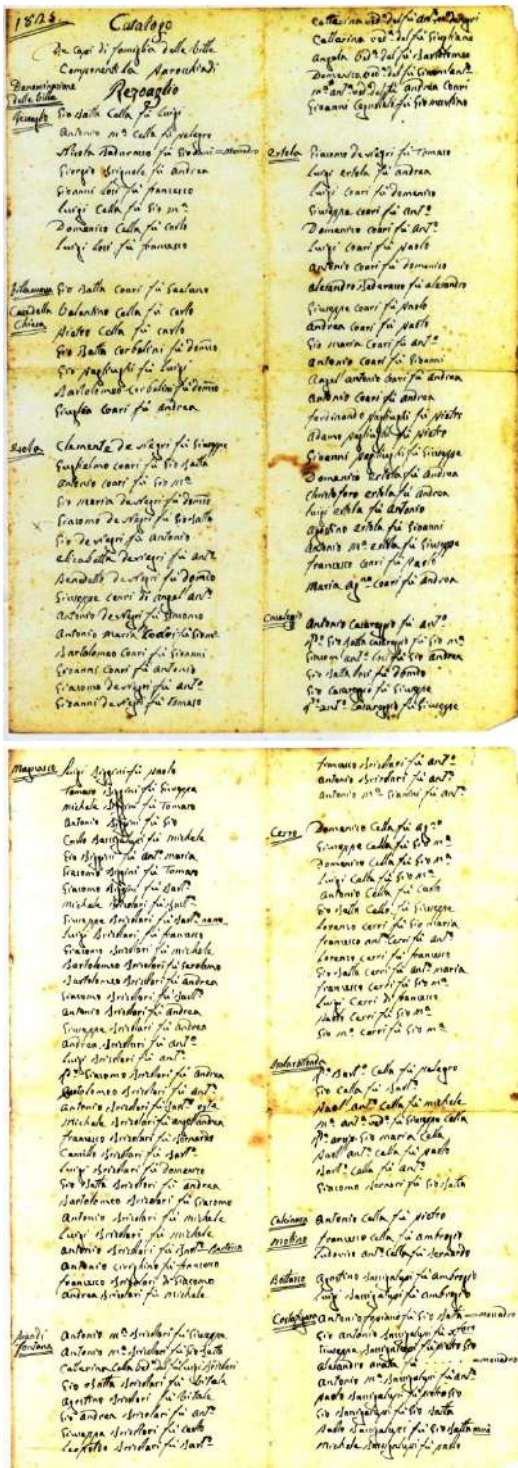 1825
Catalogo
De capi di famiglia delle ville
Componenti la Parrochia di
Rezoaglio
Denominazione
delle ville
Rezoaglio Gio Batta Cella fu Luigi
Antonio Mª Cella fu Pelegro
Nicola Badaracco fu Giovani = monadro
Giorgio Brignole fu Andrea
Giovanni Losi fu francesco
Luigi Cella fu Gio Mª
Domenico Cella fu Carlo
Luigi Losi fu francesco
Villanuova Gio Batta Coari fu Gaetano
Casa della Valentino Cella fu Carlo
Chiesa Pietro Cella fu Carlo
Gio Batta Corbalini fu Domco
Gio Pagliughi fu Luigi
Bartolomeo Corbalini fu Domco
Giuglia Coari fu Andrea
Isola Clemente de negri fu Giuseppe
Guglielmo Coari fu Gio Batta
Antonio Coari fu Gio Mª
Gio Maria de negri fu Domco
Giacomo de negri fu Gio Batta
Gio de negri fu Antonio
Elizabetta de negri fu Antº
Benedetto de negri fu Domco
Giuseppe Coari di Angel Antº
Antonio de negri fu Giacomo
Antonio Maria fu Gio Mª
Bartolomeo Coari fu Gioanni
Giovanni Coari fu Antonio
Giacomo de negri fu Antº
Giovanni de negri fu Tomaso
Cattarina vedª del fu Antº de negri
Cattarina vedª del fu Giugliano
Angela vedª del fu Bartolomeo
Domenica vedª del fu Simon Antº
Mª Antª vedª del fu Andrea Coari
Giovanni fu Gio Martino
Ertola Giacomo de negri fu Tomaso
Luigi Ertola fu Andrea
Luigi Coari fu Domenico
Giuseppe Coari fu Antº
Domenico Coari fu Antº
Luigi Coari fu Paolo
Antonio Coari fu Domenico
Alesandro Badaracco fu Alesandro
Giuseppe Coari fu Paolo
Andrea Coari fu Paolo
Gio Maria Coari fu Antº
Antonio Coari fu Gioanni
Angel Antonio Coari fu Andrea
Antonio Coari fu Andrea
ferdinando Pagliughi fu Pietro
Adamo Pagliughi fu Pietro
Giovanni Pagliughi fu Giuseppe
Domenico Ertola fu Andrea
Christoforo Ertola fu Andrea
Luigi Ertola fu Antonio
Agostino Ertola fu Gioanni
Antonio Mª Ertola fu Giuseppe
francesco Coari fu Paolo
Maria Agna Coari fu Andrea
Casalegio Antonio Casareggio fu Antº
Gio Batta Casareggio fu Gio Mª
Antº Losi fu Gio Andrea
Gio Batta Losi fu Domco
Gio Casareggio fu Giuseppe
Antº Casareggio fu Giuseppe
Magnasco Luigi Biggini fu Paolo
Tomaso Biggini fu Giuseppe
Michele Biggini fu Tomaso
Antonio Biggini fu Gio
Carlo Sanguineti fu Michele
Gio Biggini fu Antº Maria
Giacomo Biggini fu Tomaso
Giacomo Biggini fu Bartº
Michele Brizolari fu Bartº
Giuseppe Brizolari fu Bartº
Luigi Brizolari fu francesco
Giacomo Brizolari fu Michele
Bartolomeo Brizolari fu Gerolamo
Bartolomeo Brizolari fu Andrea
Giacomo Brizolari fu Bartº
Antonio Brizolari fu Andrea
Giuseppe Brizolari fu Andrea
Andrea Brizolari fu Antº
Luigi Brizolari fu Antº
Giacomo Brizolari fu Andrea
Bartolomeo Brizolari fu Antº
Antonio Brizolari fu Bartº
Michele Brizolari fu Angel Andrea
francesco Brizolari fu Bernardo
Camillo Brizolari fu Bartº
Luigi Brizolari fu Domenico
Gio Batta Brizolari fu Andrea
Bartolomeo Brizolari fu Giacomo
Antonio Brizolari fu Michele
Luigi Brizolari fu Michele
Antonio Brizolari fu Bartº
Antonio fu francesco
francesco Brizolari di Giacomo
Andrea Brizolari fu Michele
fontana Antonio Mª Brizolari fu Giuseppe
Antonio Brizolari fu Gio Batta
Catarina Cella vedª del fu Luigi Brizolari
Gio Batta Brizolari fu Vitale
Agostino Brizolari fu Vitale
Gio Andrea Brizolari fu Antº
Giuseppe Brizolari fu Carlo
Leopoldo Brizolari fu Bartº
francesco Brizolari fu Antº
Antonio Brizolari fu Antº
Antonio Mª fu Antº
Cerro Domenico Cella fu Agnº
Giuseppe Cella fu Gio Mª
Domenico Cella fu Gio Mª
Luigi Cella fu Gio Mª
Antonio Cella fu Carlo
Gio Batta Cella fu Giuseppe
Lorenzo Cerri fu Gio Maria
francesco Antº Cerri fu Antº
Lorenzo Cerri fu francesco
Gio Batta Cerri fu Antº Maria
francesco Cerri fu Gio Mª
Luigi Cerri di francesco
Paolo Cerri fu Gio Mª
Gio Mª Cerri fu Gio Mª
Bartº Cella fu Pelegro
Gio Cella fu Bartº
Paol Antº Cella fu Michele
Mª Antª vedª fu Giuseppe Cella
Gio Maria Cella
Paol Antº Cella fu Paolo
Bartº Cella fu Antº
Giacomo Bernari fu Gio Batta
Calcinara Antonio Cella fu Pietro
Molino francesco Cella fu Ambrogio
Ludovico Antº Cella fu Bernardo
Agostino fu Ambrogio
Luigi fu Ambrogio
Costafigara Antonio fu Gio Batta = monadro
Gio Antonio
Giuseppe fu Pietro Gio
Alesandro fu . . . . . = monadro
Antonio Mª fu Antº
Paolo fu Pietro Gio
Gio fu Gio Batta
Paolo fu Gio Batta
Michele fu Paolo